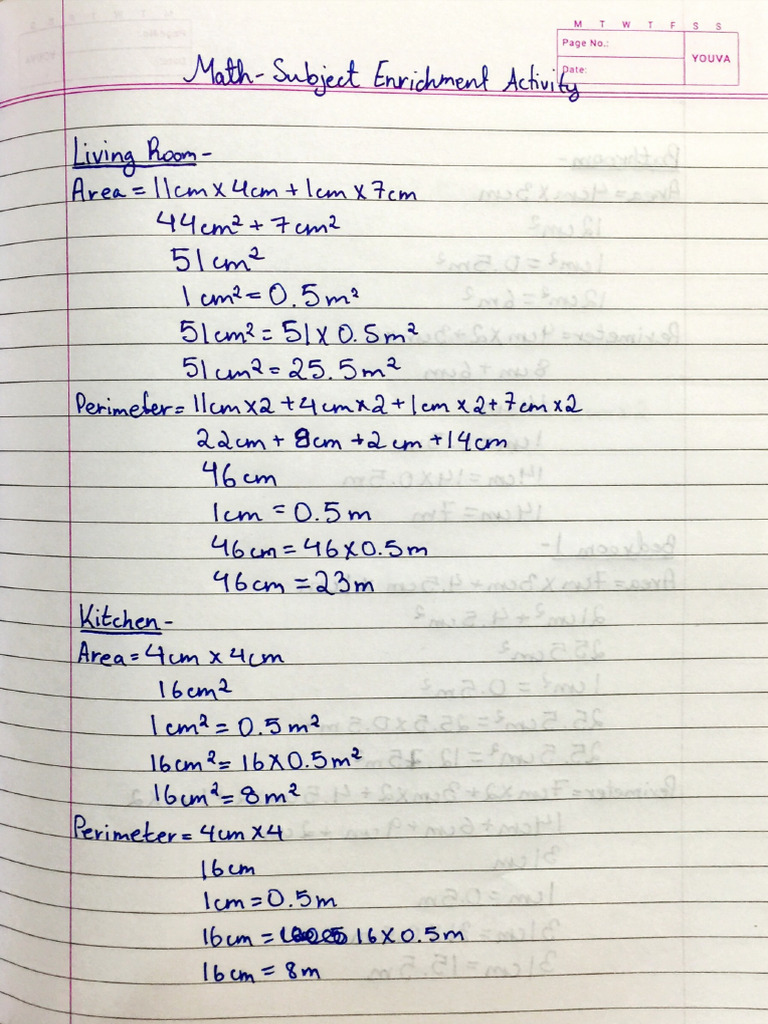 M T W T F S S
Page No.:
YOUVA
Date:
Math-Subject Enrichment Activity
Living Room-
Area = 11cm x 4cm + 1cm x 7cm
44cm² + 7cm²
51cm²
1cm² = 0.5m²
51cm² = 51 x 0.5m²
51cm² = 25.5m²
Perimeter = 11cm x2 + 4cm x2 + 1cm x2 + 7cm x2
22cm + 8cm + 2cm + 14cm
46cm
1cm = 0.5m
46cm = 46 x 0.5m
46cm = 23m
Kitchen-
Area = 4cm x 4cm
16cm²
1cm² = 0.5m²
16cm² = 16 x 0.5m²
16cm² = 8m²
Perimeter = 4cm x 4
16cm
1cm = 0.5m
16cm = 16 x 0.5m
16cm = 8m